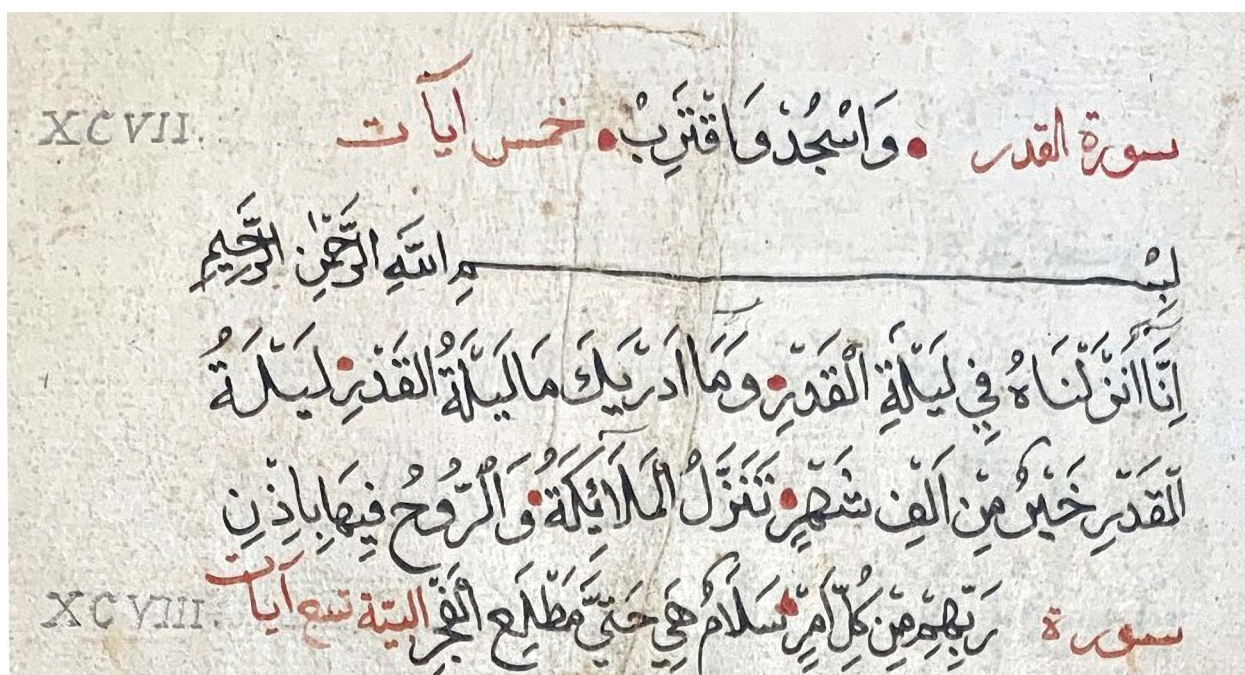 سورة القدر • وَاسْجُدْ وَاقْتَرِبْ • خمس ايآت XCVII.
بِسْمِ اللَّهِ الرَّحْمٰنِ الرَّحِيمِ
اِنَّٓا أَنْزَلْنَاهُ فِي لَيْلَةِ الْقَدْرِ • وَمَٓا اَدْرَيكَ مَا لَيْلَةُ الْقَدْرِ • لَيْلَةُ
الْقَدْرِ خَيْرٌ مِنْ اَلْفِ شَهْرٍ • تَنَزَّلُ الْمَلَآئِكَةُ • وَالرُّوحُ فِيهَا بِاِذْنِ
سورة رَبِّهِمْ مِنْ كُلِّ اَمْرٍ • سَلَامٌ هِيَ حَتَّىٰ مَطْلَعِ الْفَجْرِ البيّنة تسع آيات XCVIII.